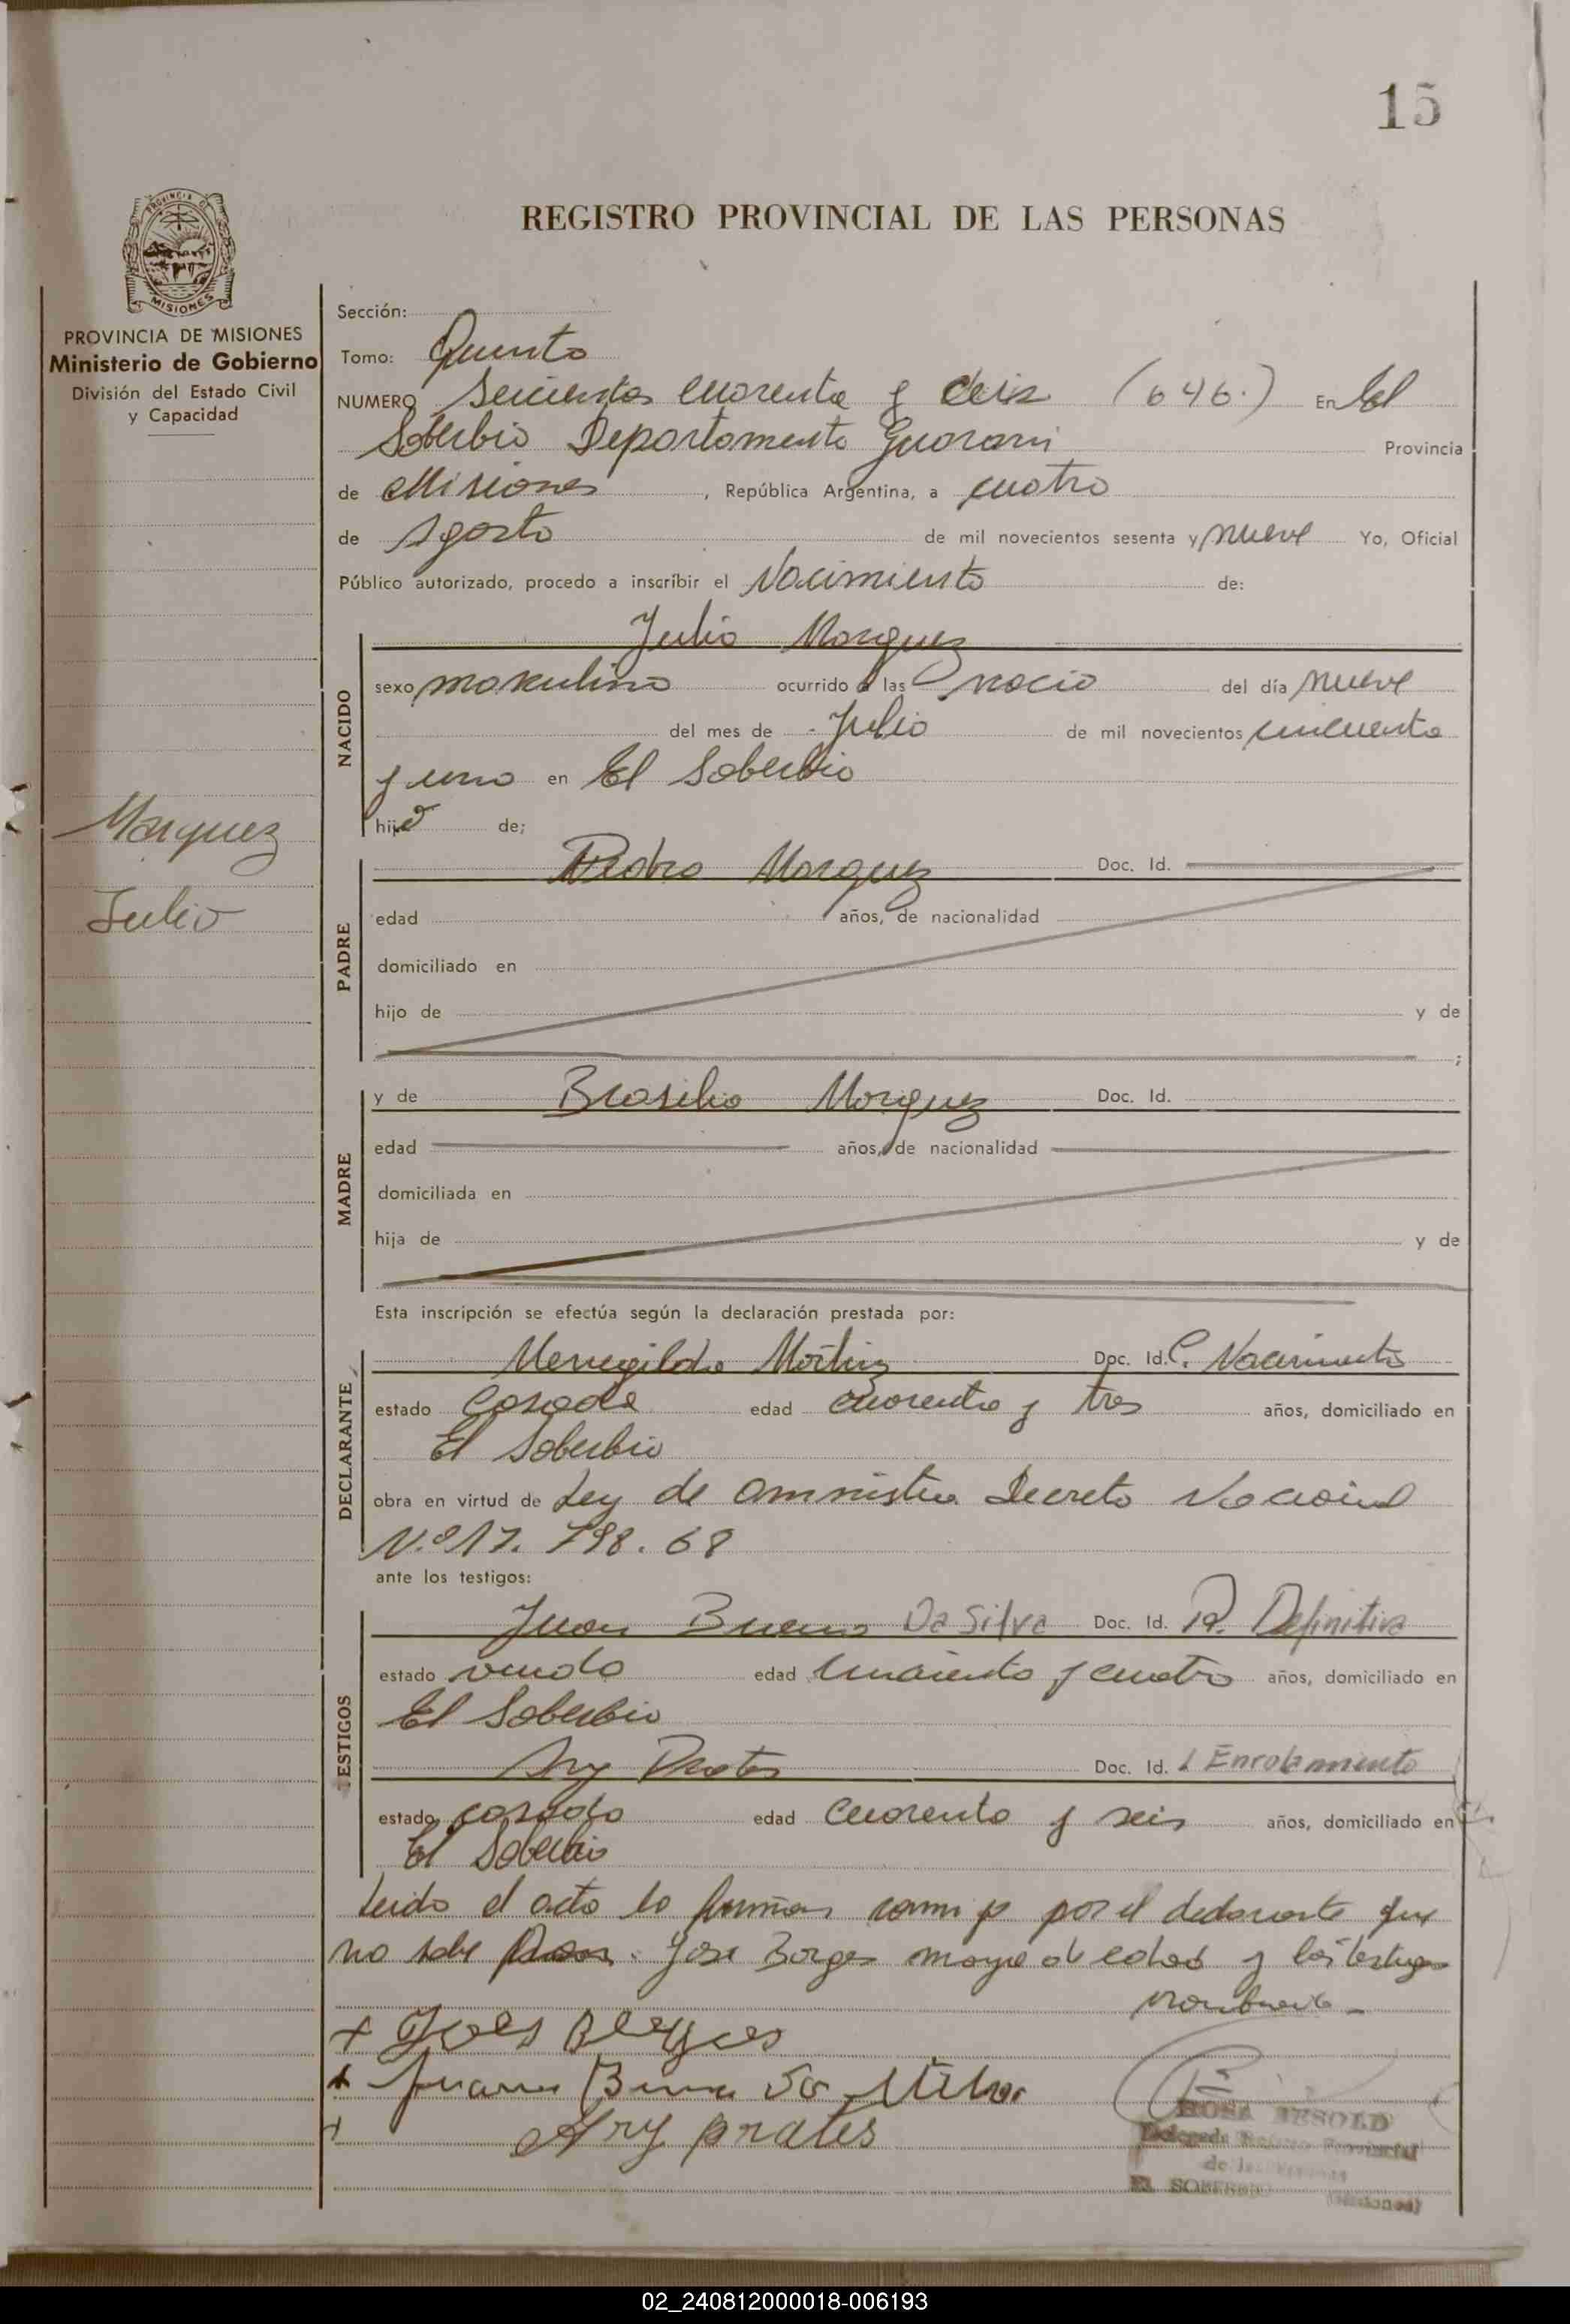 15
PROVINCIA DE
MISIONES
REGISTRO PROVINCIAL DE LAS PERSONAS
PROVINCIA DE MISIONES
Ministerio de Gobierno
División del Estado Civil
y Capacidad
Marquez
Julio
Sección:
Tomo: Quinto
NUMERO Seicientos cuarenta y seis (646.) En El
Soberbio Departamento Guarani Provincia
de Misiones, República Argentina, a cuatro
de Agosto de mil novecientos sesenta y nueve Yo, Oficial
Público autorizado, procedo a inscribir el Nacimiento de:
Julio Marquez
NACIDO
sexo maskulino ocurrido a las nacio del día nueve
del mes de Julio de mil novecientos cincuenta
y uno en El Soberbio
hijo de;
Pedro Marquez Doc. Id.
PADRE
edad años, de nacionalidad
domiciliado en
hijo de y de
;
y de Brasilia Marquez Doc. Id.
MADRE
edad años, de nacionalidad
domiciliada en
hija de y de
Esta inscripción se efectúa según la declaración prestada por:
Doc. Id. C. Nacimiento
DECLARANTE
estado Casado edad cuarenta y tres años, domiciliado en
El Soberbio
obra en virtud de Ley de amnistia Decreto Nacional
N.º 17. 798. 68
ante los testigos:
Juan Bueno Da Silva Doc. Id. R. Definitiva
TESTIGOS
estado viudo edad cincuenta y cuatro años, domiciliado en
El Soberbio
Ary Prates Doc. Id. L Enrolamiento
estado casado edad cuarenta y seis años, domiciliado en
El Soberbio
Leido el acta lo firman por el declarante que
no sabe Jose Borges mayor de edad y los testigos
Ary prates
ROSA BESOLD
Delegada Registro Provincial
de las Personas
EL SOBERBIO (Misiones)
02_240812000018-006193